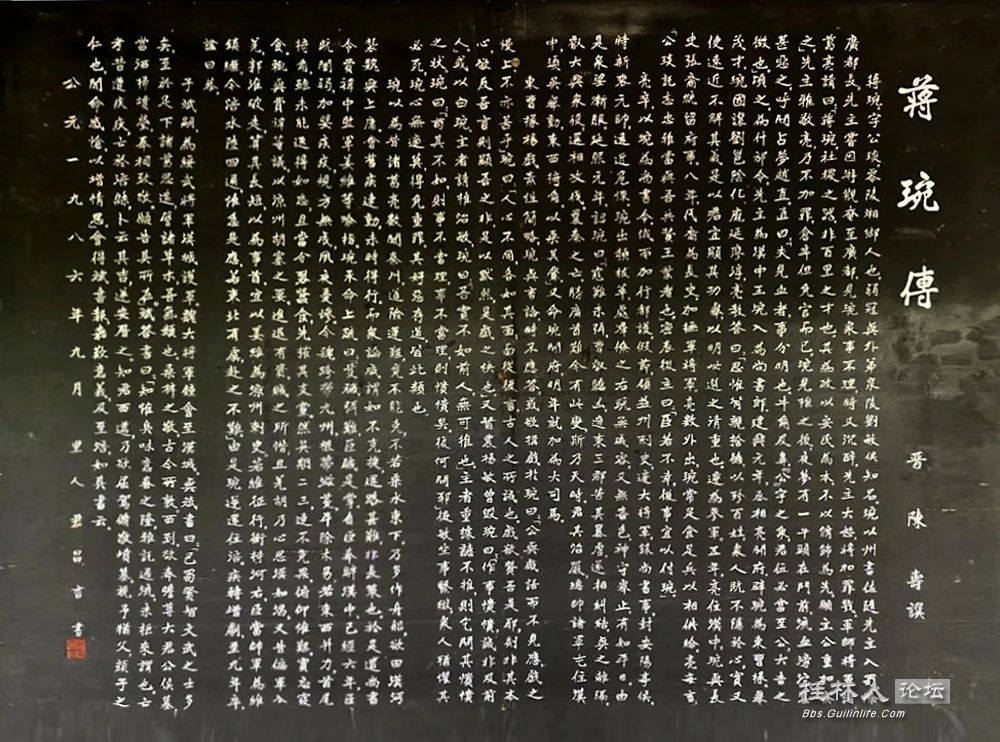 蔣琬傳
晉 陳壽 譔
蔣琬字公琰零陵湘鄉人也弱冠與外弟泉陵劉敏俱知名琬以州書佐隨先主入蜀除
廣都長先主嘗因游觀奄至廣都見琬衆事不理時又沈醉先主大怒將加罪戮軍師將
葛亮請曰蔣琬社稷之器非百里之才也其爲政以安民爲本不以脩飾爲先願主公重
之先主雅敬亮乃不加罪倉卒但免官而已琬見推之後夜夢有一牛頭在門前流血滂
甚惡之呼問占夢趙直直曰夫見血者事分明也牛角及鼻公字之象君位必當至公大吉之
徵也頃之爲什邡令先主爲漢中王琬入爲尚書郎建興元年丞相亮開府辟琬爲東曹掾舉
茂才琬固讓劉邕陰化龐延廖淳亮教答曰「思惟背親捨德以殄百姓衆人既不隱於心實又
使遠近不解其義是以君宜顯其功舉以明此選之清重也」遷爲參軍五年亮住漢中琬與長
史張裔統留府事八年代裔爲長史加撫軍將軍亮數外出琬常足食足兵以相供給亮每言
「公琰託志忠雅當與吾共贊王業者也」密表後主曰「臣若不幸後事宜以付琬」
亮卒以琬爲尚書令俄而加行都護假節領益州刺史遷大將軍錄尚書事封安陽亭侯
時新喪元帥遠近危悚琬出類拔萃處羣僚之右既無戚容又無喜色神守舉止有如平日由
是衆望漸服延熙元年詔琬曰「寇難未弭曹叡驕凶遼東三郡苦其暴虐遂相糾結與之離隔
叡大興衆役還相攻伐曩秦之亡勝廣首難今有此變斯乃天時君其治嚴總帥諸軍屯住漢
中須吳舉動東西掎角以乘其釁」又命琬開府明年就加爲大司馬
東曹掾楊戲素性簡略琬與言論時不應答或欲搆戲於琬曰「公與戲語而不見應戲之
慢上不亦甚乎」琬曰「人心不同各如其面面從後言古人之所誡也戲欲贊吾是耶則非其本
心欲反吾言則顯吾之非是以默然是戲之快也」又督農楊敏曾毀琬曰「作事憒憒誠非及前
人」或以白琬主者請推治敏琬曰「吾實不如前人無可推也」主者重據聽不推則乞問其憒憒
之狀琬曰「苟其不如則事不當理事不當理則憒憒矣復何問耶」後敏坐事繫獄衆人猶懼其
必死琬心無適莫得免重罪其好惡存道皆此類也
琬以爲昔諸葛亮數闚秦川道險運艱竟不能克不若乘水東下乃多作舟船欲由漢沔
襲魏興上庸會舊疾連動未時得行而衆論咸謂如不克捷還路甚難非長策也於是遣尚書
令費禕中監軍姜維等喻指琬承命上疏曰「芟穢弭難臣職是掌自臣奉辭漢中已經六年臣
既闇弱加嬰疾疢規方無成夙夜憂慘今魏跨帶九州根蒂滋蔓平除未易若東西并力首尾
掎角雖未能速得如志且當分裂蠶食先摧其支黨然吳期二三連不克果俯仰惟艱實忘寢
食輒與費禕等議以涼州胡塞之要進退有資賊之所惜且羌胡乃心思漢如渴又昔偏軍入
羌郭淮破走算其長短以爲事首宜以姜維爲涼州刺史若維征行銜持河右臣當帥軍爲維
鎮繼今涪水陸四通惟急是應若東北有虞赴之不難」由是琬遂還住涪疾轉增劇至九年卒
謚曰恭
子斌嗣爲綏武將軍漢城護軍魏大將軍鍾會至漢城與斌書曰「巴蜀賢智文武之士多
矣至於足下諸葛思遠譬諸草木吾氣類也桑梓之敬古今所敦西到欲奉瞻尊大君公侯墓
當洒掃墳塋奉祠致敬願告其所在」斌答書曰「知惟臭味意眷之隆雅託通流未拒來謂也亡
考昔遭疾疢亡於涪縣卜云其吉遂安厝之知君西邁乃欲屈駕脩敬墳墓視予猶父顏子之
仁也聞命感愴以增情思」會得斌書報嘉歎意義及至涪如其書云
公元一九八六年九月 里人 昌言 書
桂林人论坛
Bbs.Guilinlife.Com